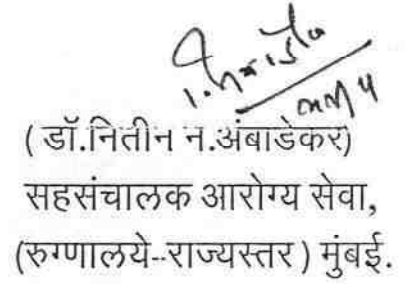 ( डॉ.नितीन न.अंबाडेकर)
सहसंचालक आरोग्य सेवा,
(रुग्णालये--राज्यस्तर ) मुंबई.